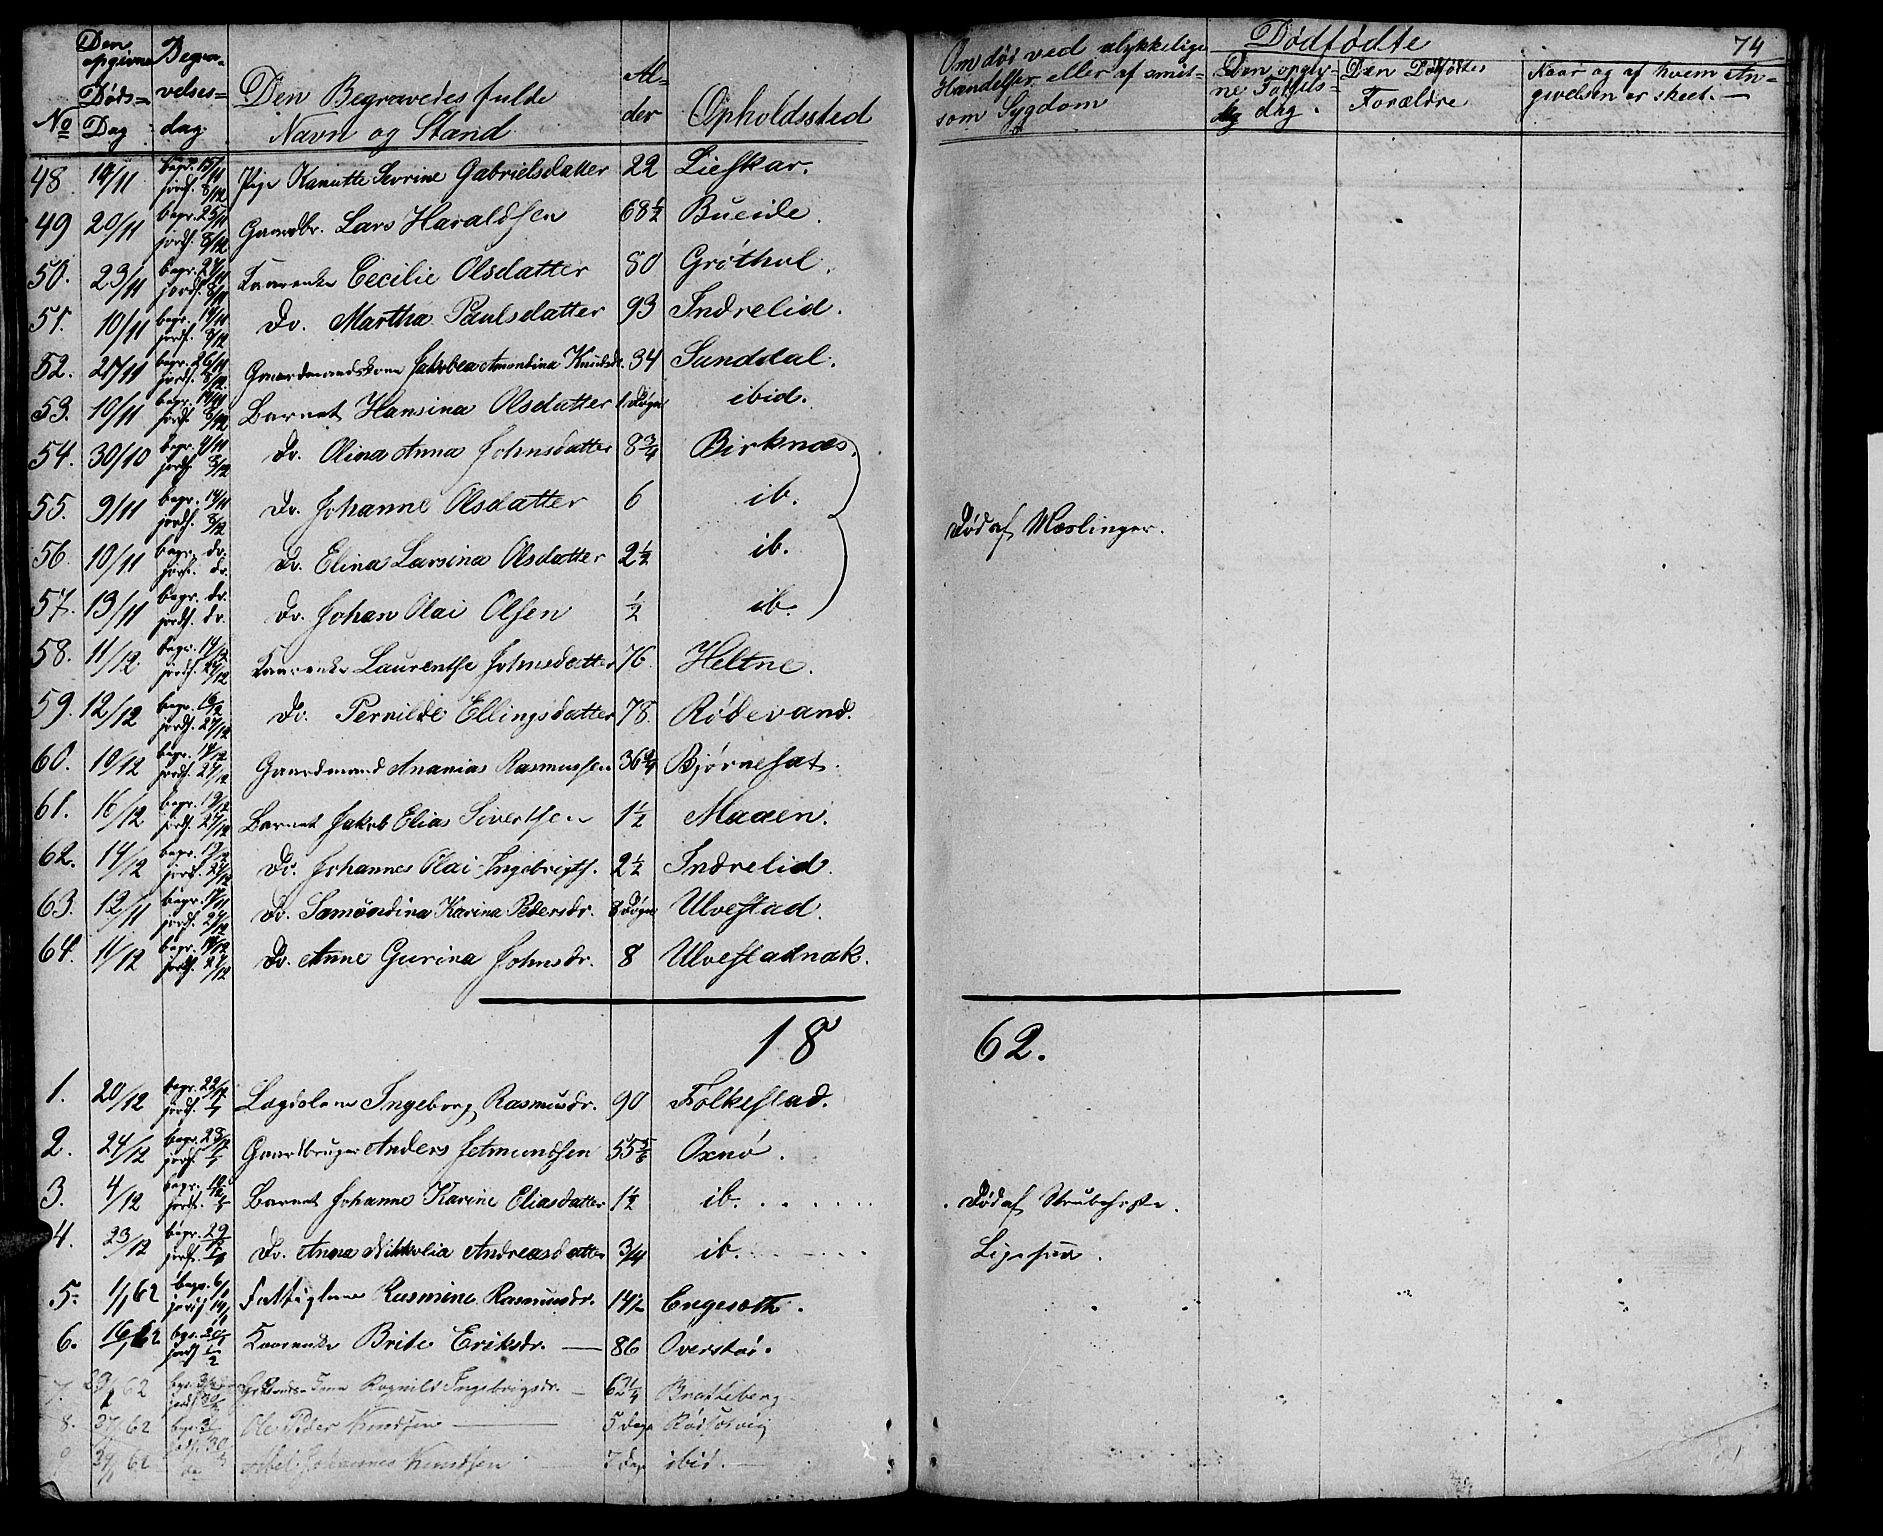 No Den opgivne Døds-Dag Begravelses-dag Den Begravedes fulde Navn og Stand Alder Opholdssted Om død ved ulykkelige Hændelser eller af smitsom Sygdom Dødfødte Den opgivne Fødselsdag. Den Dødfødtes Forældre Naar og af hvem Angivelsen er skeet. — 74
48 14/11 begr. 15/11 jordf. 8/12 Pige Kanutte Sevrine Gabrielsdatter 22 Liefskar.
49 20/11 begr. 25/11 jordf. 8/12 Gaardbr. Lars Haraldsen 68½ Bueide.
50. 23/11 begr. 27/11 jordf. Kaarenke Cecilie Olsdatter 80 Gröthol.
51. 10/11 begr. 14/11 jordf. 8/12 Do. Martha Paulsdatter 93 Indrelid.
52. begr. 26/11 jordf. 8/12 Gaardmandskone Jakobea Amondina Knudsd. 34 Sunddal.
53. 10/11 begr. 14/11 jordf. 8/12 Barnet Hansina Olsdatter 1 Døgn ibid.
54. 30/10 begr. 4/11 jordf. 8/12 Do. Olina Anna Johnsdatter 8¾ Birknæs.
55. 9/11 begr. 14/11 jordf. 8/12 Do. Johanne Olsdatter 6 ib. Død af Mæslinger.
56. 10/11 begr. do. jordf. do. Do. Elina Larsina Olsdatter 2½ ib.
57. 13/11 begr. do. jordf. do. Do. Johan Olai Olsen ½ ib.
58. 11/12 begr. 14/12 jordf. 27/12 Kaarenke Laurentse Johnsdatter 76. Heltne.
59. 12/12 begr. 16/12 jordf. 27/12 Do. Pernilde Ellingsdatter 78 Rödevand.
60. 10/12 begr. 14/12 jordf. 27/12 Gaardmand Ananias Rasmussen 36¾ Bjørnesæt.
61. 16/12 begr. 19/12 jordf. 27/12 Barnet Jakob Elias Sivertsen 1½ Maaen.
62. 14/12 begr. jordf. 27/12 Do. Johannes Olai Ingebrigts. 2½ Indrelid.
63. 12/11 begr. 17/11 jordf. 27/12 Do. Samöndina Karina Pedersdr. 8 Døgn Ulvestad.
64. 11/12 begr. 14/12 jordf. 27/12 Do. Anne Gurina Johnsdr. 8 Ulvestadnak.
18 62.
1. 20/12 begr. 22/12 jordf. Lægdslem Ingeborg Rasmusdr. 90 Folkestad.
2. 24/12 begr. 28/12 jordf. Gaardbruger Anders Asmundsen 55 5/6 Oxnö.
3. 4/12 begr. jordf. Barnet Johanne Karine Eliasdatter 1½ ib. . . . . . . Død af Strubehoste.
4. 23/12 begr. 29/12 jordf. Do. Anna Nikkolia Andreasdatter 3/4 ib. . . . . . Ligesaa.
5. 1/1 62 begr. 6/1 jordf. Fattiglem Rasmine Rasmusdr. 14½ Engesæth.
6. 16/1 62 begr. jordf. Kaarenke Brite Eriksdr. — 86 Överstöi.
7. 62 begr. jordf. Ragnild Ingebrigsdr. — Bratteberg
8. 62 begr. Ole Peder Knudsen — 5 Dage
62 Johannes Knudsen 7 Dage ibid. —